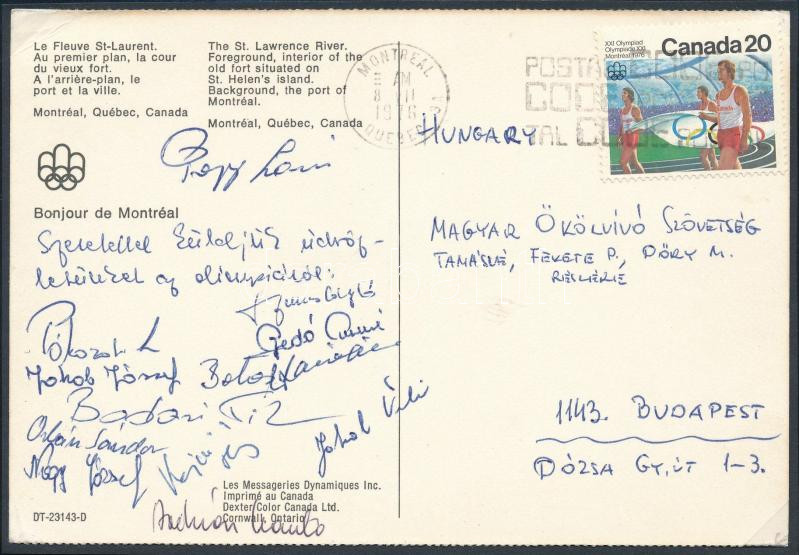 Le Fleuve St-Laurent.
Au premier plan, la cour
du vieux fort.
A l'arrière-plan, le
port et la ville.
Montréal, Québec, Canada
The St. Lawrence River.
Foreground, interior of the
old fort situated on
St. Helen's island.
Background, the port of
Montreal.
Montréal, Québec, Canada
Papp Laci
Bonjour de Montréal
Szeretettel küldjük üdvöz-
letünket az olimpiáról:
Gedó
Jakab József Botos
Badari Tib
Orbán Sándor
Nagy József
Jakab
Les Messageries Dynamiques Inc.
Imprimé au Canada
Dexter Color Canada Ltd.
Cornwall, Ontario
DT-23143-D
MONTREAL
AM
1976
QUEBEC
POSTAL
CODE
TAL
XXI Olympiad
Olympiade XXI
Montréal 1976
Canada 20
HUNGARY
MAGYAR ÖKÖLVÍVÓ SZÖVETSÉG
TAMÁSNÉ, FEKETE P., DŐRY M.
RÉSZÉRE
1143. BUDAPEST
DÓZSA GY. ÚT 1-3.